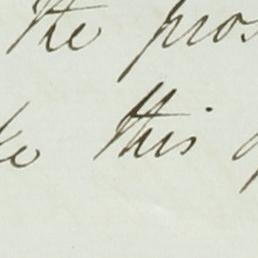 the pros
this